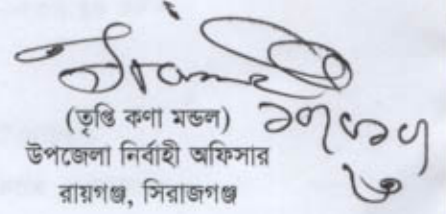 (তৃপ্তি কণা মন্ডল)
উপজেলা নির্বাহী অফিসার
রায়গঞ্জ, সিরাজগঞ্জ